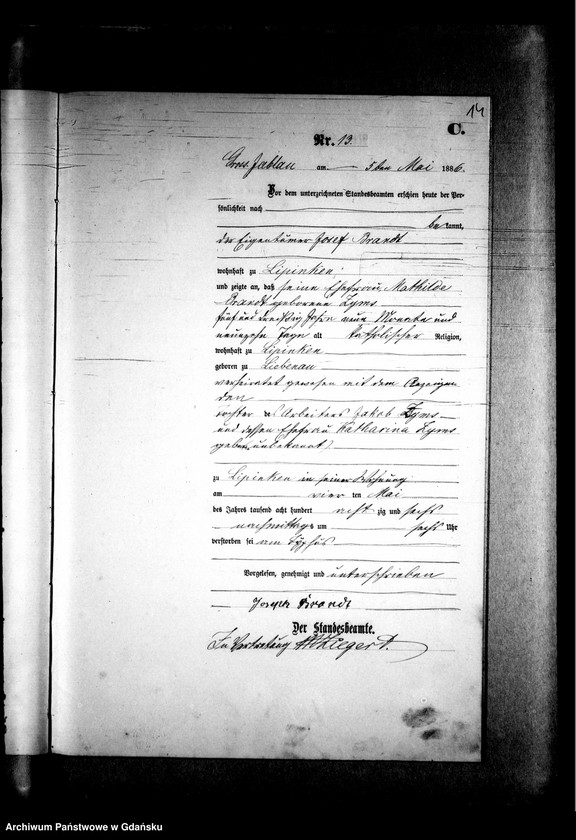 14
C.
Nr. 13.
Gross Jablau am 5ten Mai 1886.
Vor dem unterzeichneten Standesbeamten erschien heute der Per-
sönlichkeit nach
bekannt,
der Eigentümer Josef Brandt
wohnhaft zu Lipinken,
und zeigte an, daß seine Ehefrau Mathilde
Brandt geborene Zyms
fünf und dreißig Jahre neun Monate und
neunzehn Tage alt katholischer Religion,
wohnhaft zu Lipinken
geboren zu Liebenau
verheiratet gewesen mit dem Anzeigen
den
Tochter des Arbeiters Jakob Zyms
und dessen Ehefrau Katharina Zyms
geb. unbekannt
zu Lipinken in seiner Wohnung
am vier ten Mai
des Jahres tausend acht hundert acht zig und sechs
nachmittags um sechs Uhr
verstorben sei am Typhus
Vorgelesen, genehmigt und unterschrieben
Joseph Brandt
Der Standesbeamte.
In Vertretung
Archiwum Państwowe w Gdańsku